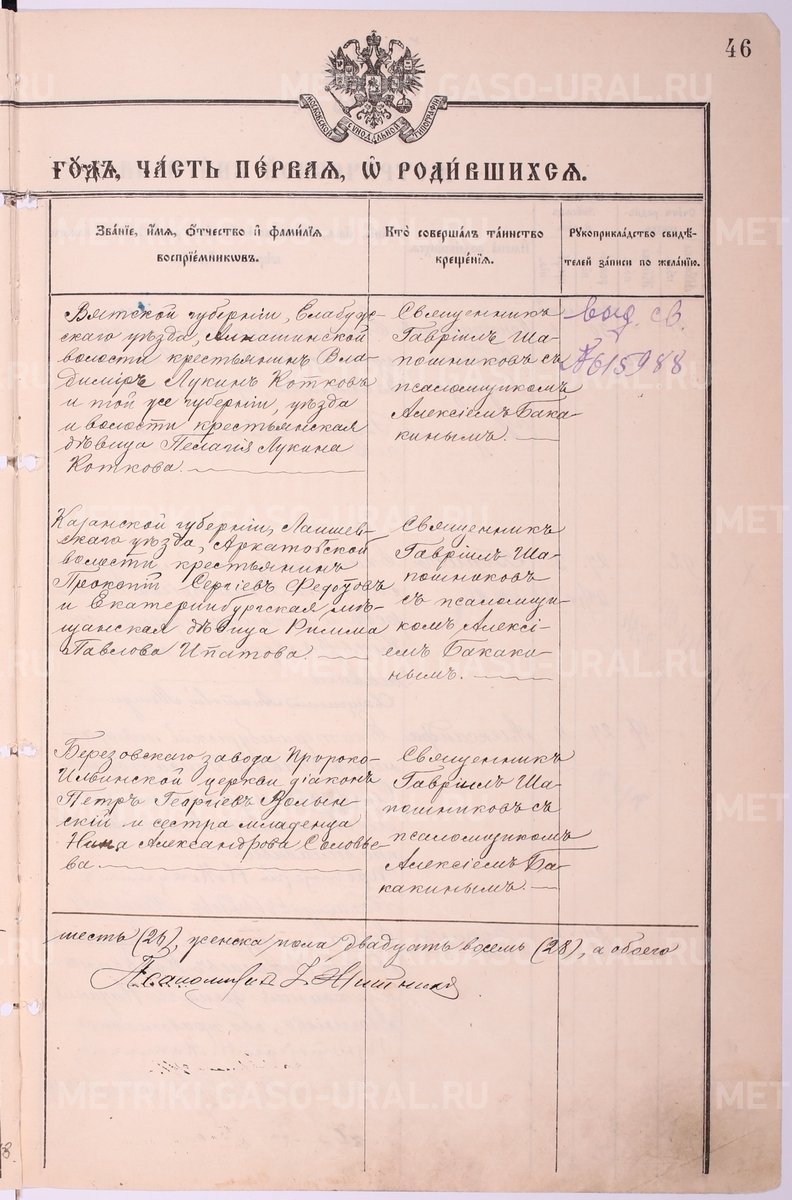 46
МОСКОВСКОЙ СѴНОДАЛЬНОЙ ТИПОГРАФІИ
ГОДЪ, ЧАСТЬ ПЕРВАЯ, Ѽ РОДИ́ВШИХСЯ.
ЗВА́НІЕ, И҆́МЯ, Ѻ҆́ТЧЕСТВО И҆ ФАМИ́ЛІЯ
ВОСПРІЕ́МНИКѠВЪ.
КТО̀ СОВЕРША́ЛЪ ТА́ИНСТВО
КРЕЩЕ́НІЯ.
РꙊКОПРИКЛА́ДСТВО СВИДѢ́-
ТЕЛЕЙ ЗА́ПИСИ ПО ЖЕЛА́НІЮ.
Вятской губерніи, Елабуж-
скаго уѣзда, Алнашинской
волости крестьянинъ Вла-
димиръ Лукинъ Котковъ
и той же губерніи, уѣзда
и волости крестьянская
дѣвица Пелагія Лукина
Коткова.
Священникъ
Гавріилъ Ша-
пошниковъ съ
псаломщикомъ
Алексіемъ Бака-
кинымъ.
выд. св.
№ 615988
Казанской губерніи, Лаишев-
скаго уѣзда, Аркатовской
волости крестьянинъ
Прокопій Сергіевъ Федотовъ
и Екатеринбургская мѣ-
щанская дѣвица Римма
Павлова Ипатова.
Священникъ
Гавріилъ Ша-
пошниковъ
съ псаломщи-
комъ Алексі-
емъ Бакаки-
нымъ.
Березовскаго завода Пророко-
Ильинской церкви діаконъ
Петръ Георгіевъ Волын-
скій и сестра младенца
Нина Александрова Соловье-
ва.
Священникъ
Гавріилъ Ша-
пошниковъ съ
псаломщикомъ
Алексіемъ Ба-
какинымъ.
шесть (26), женска пола двадцать восемь (28), а обоего
Псаломщикъ
METRIKI.GASO-URAL.RU